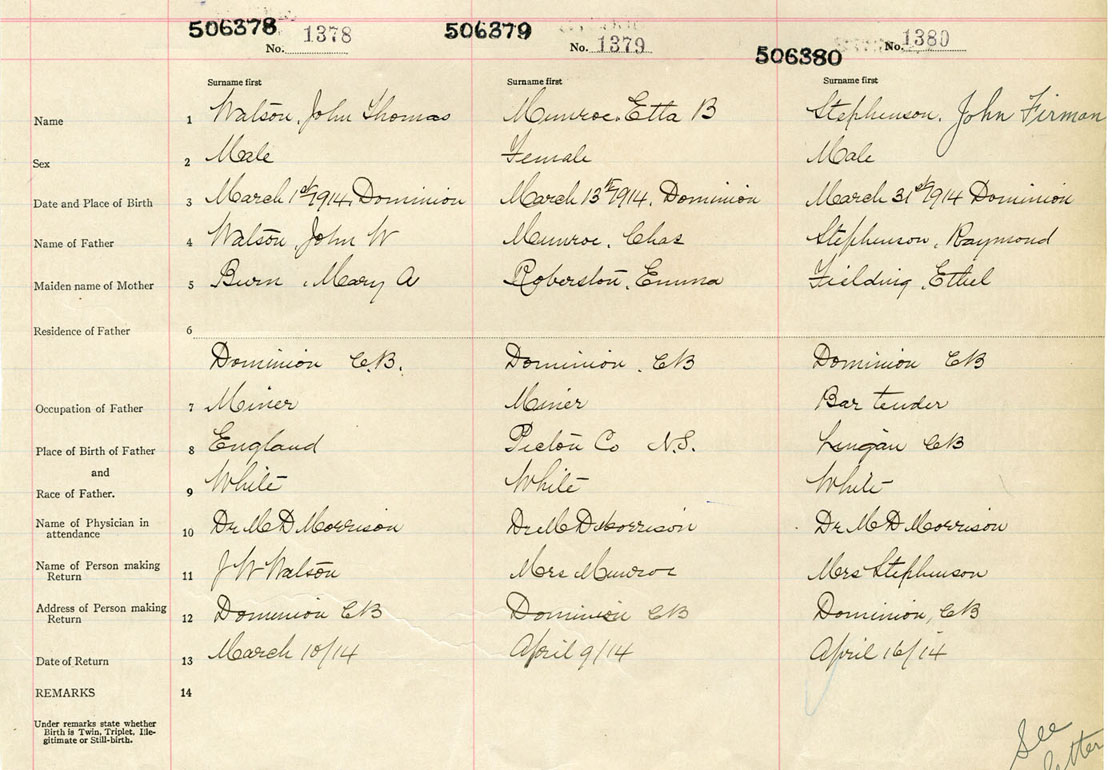 506378 No. 1378 506379 No. 1379 506380 No. 1380
Surname first Surname first Surname first
Name 1 Watson, John Thomas Munroe, Etta B Stephenson, John Firman
Sex 2 Male Female Male
Date and Place of Birth 3 March 1st 1914 Dominion March 13th 1914, Dominion March 31st 1914 Dominion
Name of Father 4 Watson, John W Munroe, Chas Stephenson, Raymond
Maiden name of Mother 5 Burn, Mary A Roberston, Emma Fielding, Ethel
Residence of Father 6
Dominion C.B. Dominion, CB Dominion CB
Occupation of Father 7 Miner Miner Bar tender
Place of Birth of Father 8 England Pictou Co N.S. Lingan CB
and
Race of Father. 9 White White White
Name of Physician in attendance 10 Dr M D Morrison Dr M D Morrison Dr M D Morrison
Name of Person making Return 11 J W Watson Mrs Munroe Mrs Stephenson
Address of Person making Return 12 Dominion CB Dominion CB Dominion, CB
Date of Return 13 March 10/14 April 9/14 April 16/14
REMARKS 14
Under remarks state whether
Birth is Twin, Triplet, Ille-
gitimate or Still-birth.
See
letter